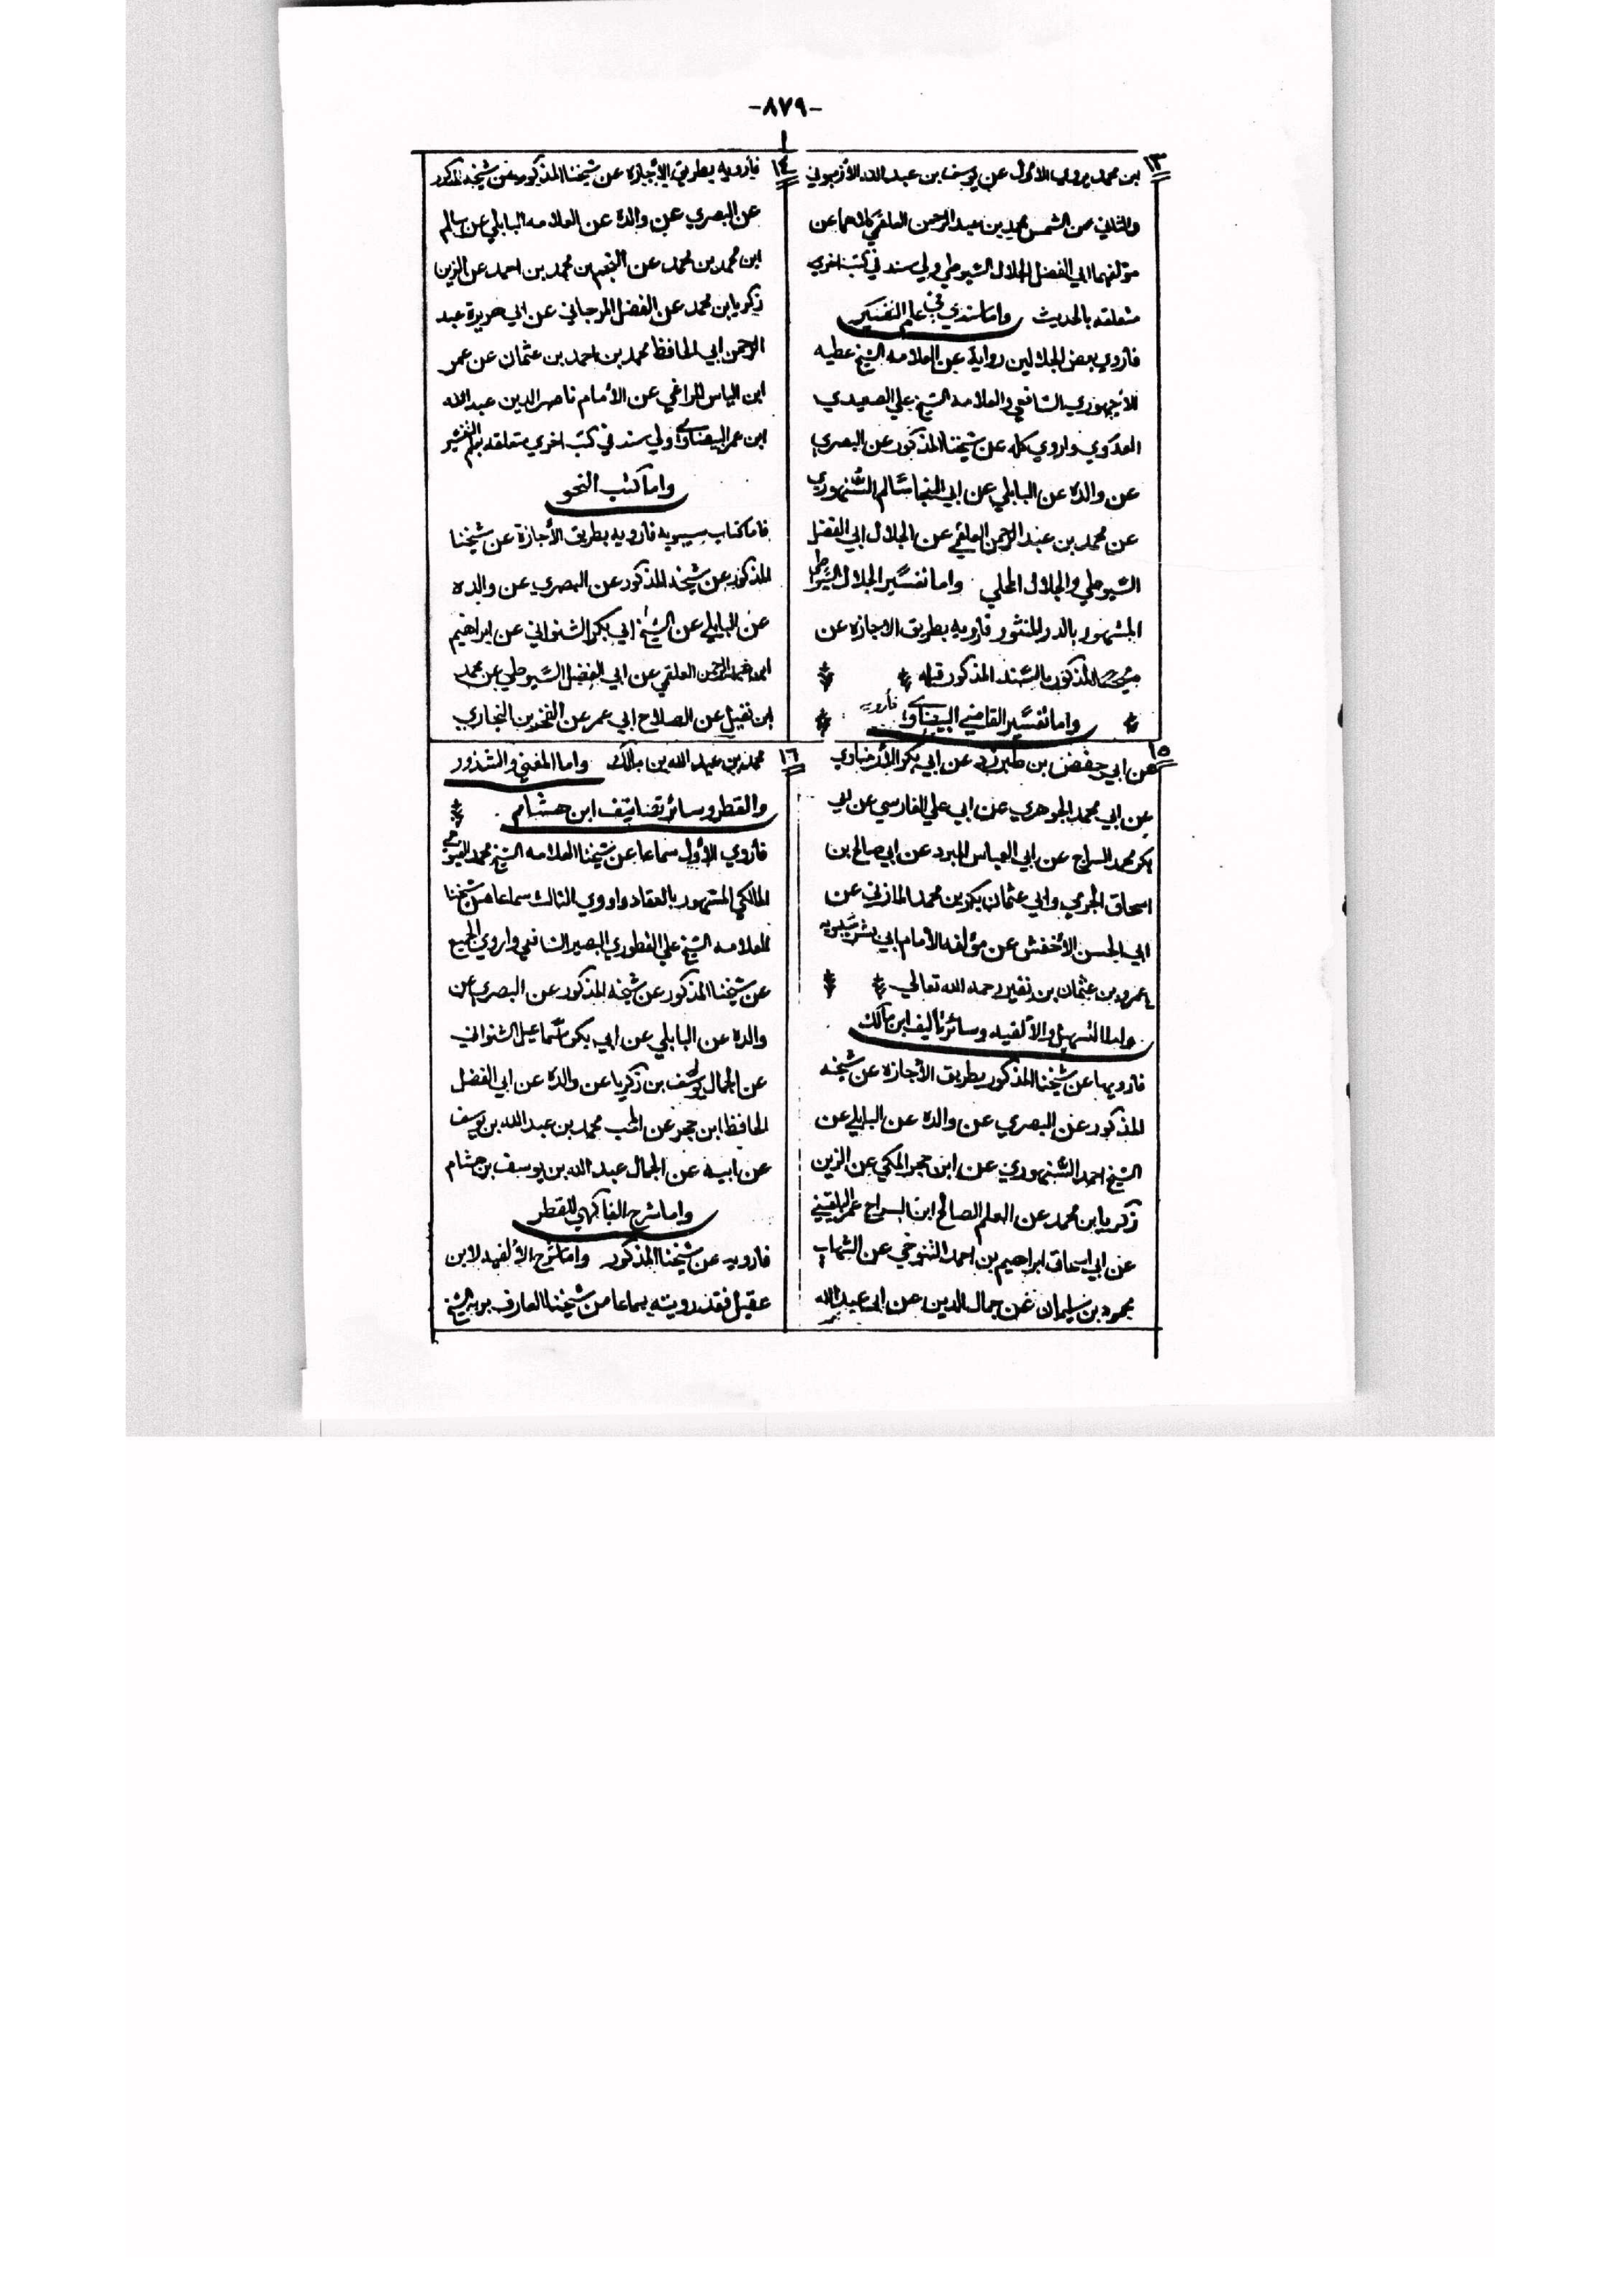 -٨٧٩-
١٣
بن محمد يروي الأول عن يوسف بن عبد الله الأرميوني
والثاني عن الشمس محمد بن عبد الرحمن العلقمي كلاهما عن
مؤلفهما ابي الفضل الجلال السيوطي ولي سند في كتب اخري
متعلقه بالحديث واما سندي في علم التفسير
فاروي بعض الجلالين رواية عن العلامه الشيخ عطيه
الأجهوري الشافعي والعلامه الشيخ علي الصعيدي
العدوي واروي كله عن شيخنا المذكور عن البصري
عن والده عن البابلي عن ابي النجا سالم السنهوري
عن محمد بن عبد الرحمن العلقمي عن الجلال ابي الفضل
السيوطي والجلال المحلي واما تفسير الجلال السيوطي
المشهور بالدر المنثور فارويه بطريق الاجازه عن
شيخنا المذكور بالسند المذكور قبله
واما تفسير القاضي البيضاوي فأرويه
١٤
فارويه بطريق الإجازه عن شيخنا المذكور عن شيخه المذكور
عن البصري عن والده عن العلامه البابلي عن سالم
ابن محمد بن محمد عن النجم بن محمد بن احمد عن الزين
زكريا بن محمد عن الفضل المرجاني عن ابي هريرة عبد
الرحمن ابي الحافظ محمد بن احمد بن عثمان عن عمر
ابن الياس المراغي عن الأمام ناصر الدين عبد الله
ابن عمر البيضاوي ولي سند في كتب اخري متعلقه بعلم التفسير
واما كتب النحو
فاما كتاب سيبويه فارويه بطريق الأجازة عن شيخنا
المذكور عن شيخه المذكور عن البصري عن والده
عن البابلي عن الشيخ ابي بكر الشنواني عن ابراهيم
ابن عبد الرحمن العلقمي عن ابي الفضل السيوطي عن محمد
ابن نفيل عن الصلاح ابي عمر عن الفخر بن البخاري
١٥
عن ابي حفص بن طبرزد عن ابي بكر
عن ابي محمد الجوهري عن ابي علي الفارسي عن ابي
بكر محمد السراج عن ابي العباس المبرد عن ابي صالح بن
اسحاق الجرمي وابي عثمان بكر بن محمد المازني عن
ابي الحسن الأخفش عن مؤلفه الأمام ابي بشر سيبويه
عمرو بن عثمان بن نفير رحمه الله تعالي
واما التسهيل والألفيه وسائر تأليف ابن مالك
فارويها عن شيخنا المذكور بطريق الأجازه عن شيخه
المذكور عن البصري عن والده عن البابلي عن
الشيخ احمد السنهوري عن ابن حجر المكي عن الزين
زكريا بن محمد عن العلم الصالح ابن السراج عمر البلقيني
عن ابي اسحاق ابراهيم بن احمد التنوخي عن الشهاب
محمود بن سليمان عن جمال الدين عن ابي عبد الله
١٦
محمد بن عبد الله بن مالك واما المغني والشذور
والقطر وسائر تصانيف ابن هشام
فاروي الأول سماعا عن شيخنا العلامه الشيخ محمد
المالكي المشهور بالعقاد واروي الثالث سماعا من شيخنا
العلامه الشيخ علي القطوري البصير الشافعي واروي الجميع
عن شيخنا المذكور عن شيخه المذكور عن البصري عن
والده عن البابلي عن ابي بكر اسماعيل الشنواني
عن الجمال يوسف بن زكريا عن والده عن ابي الفضل
الحافظ ابن حجر عن المحب محمد بن عبد الله بن يوسف
عن ابيه عن الجمال عبد الله بن يوسف بن هشام
واما شرح الفاكهي للقطر
فارويه عن شيخنا المذكور واما شرح الألفيه لابن
عقيل فقد رويته سماعا من شيخنا العارف بربه الشيخ